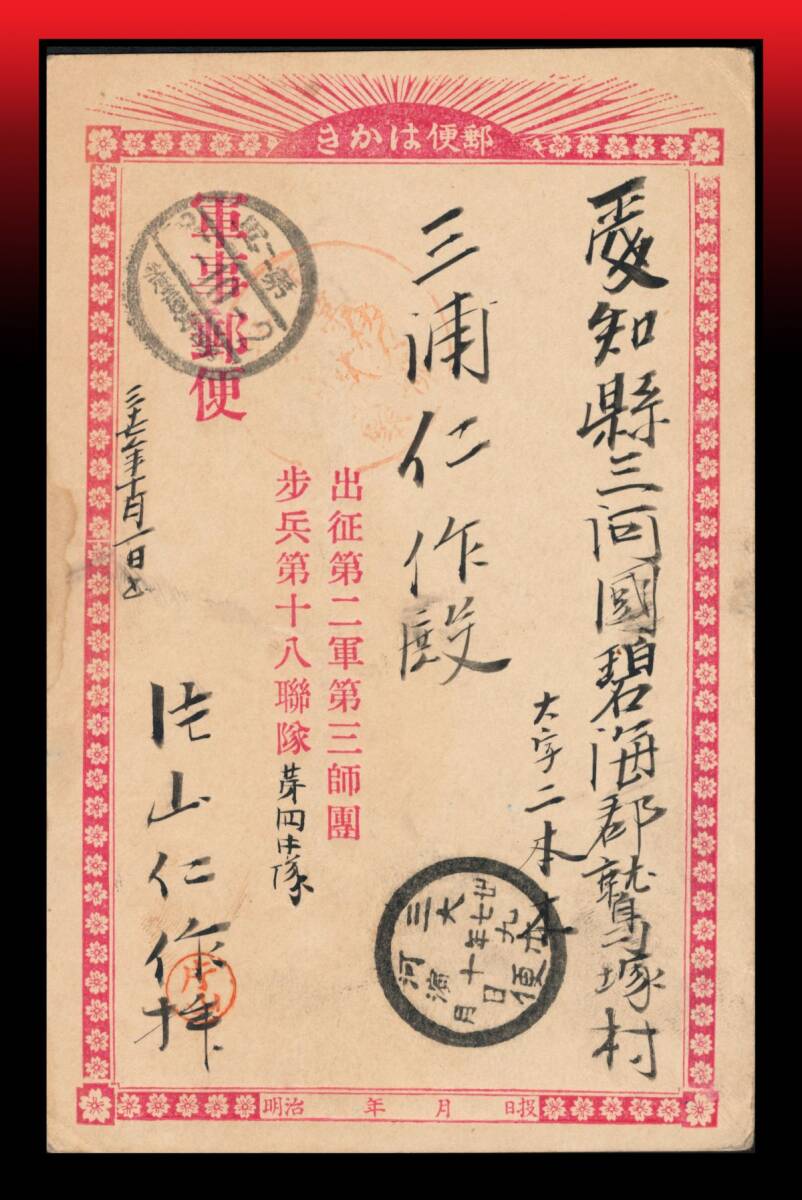 郵便はかき
愛知縣三河國碧海郡鷲塚村
大字二本木
三浦仁作殿
軍事郵便
出征第二軍第三師團
步兵第十八聯隊第四中隊
三十七年十月一日出
片山仁作拝
三河
大濱
卅七年十月
九日
便
明治 年 月 日投